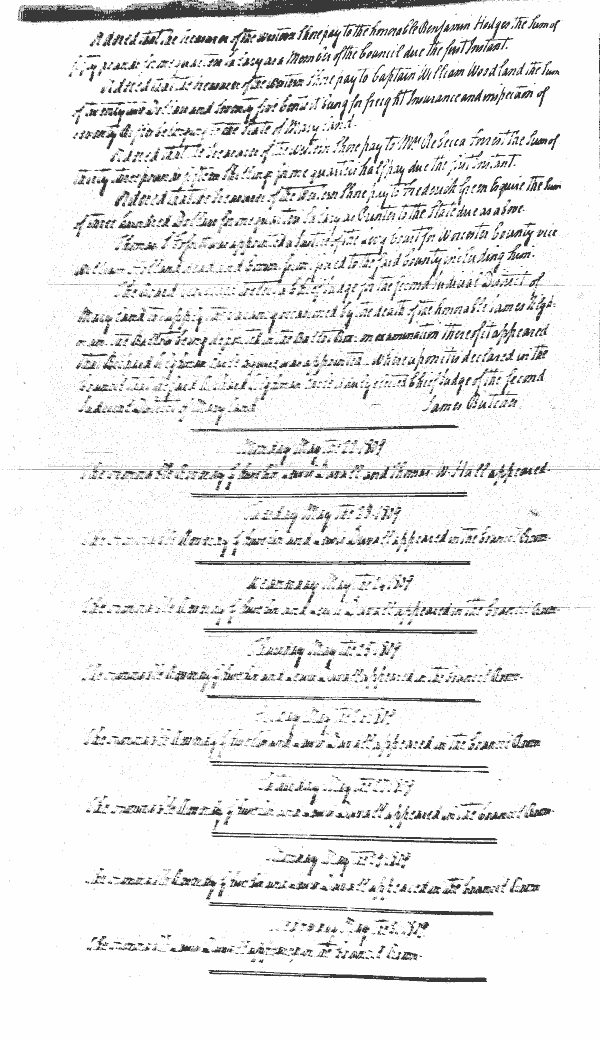 Ordered that the Treasurer of the western Shore pay to the honorable Benjamin Hodges, the Sum of
fifty pounds for one quarters Salary as a Member of the Council due the first Instant.
Ordered that the Treasurer of the western Shore pay to Captain William Woodland the Sum
of twenty two Dollars and seventy five Cents it being for freight Insurance and inspection of
belonging to the State of Maryland.
Ordered that the Treasurer of the Western Shore pay to Mrs Rebecca Forrest the Sum of
thirty three pounds fifteen Shillings for one quarters half pay due the first Instant
Ordered that the Treasurer of the Western Shore pay to Frederick Green Esquire the Sum
of three hundred Dollars for one quarters Salary as Printer to the State due as above.
Thomas was appointed a Justice of the Levy Court for Worcester County vice
William Holland dead, and Commission issued to the said County including him.
The Board proceeded to elect a Chief Judge for the second Judicial District of
Maryland to supply the vacancy occasioned by the death of the honorable James Tilgh-
man, the Ballots being deposited in the Ballot Box on examination thereof it appeared
that Richard Tilghman Earle Esquire was appointed. Whereupon it is declared in the
Council that the said Richard Tilghman Earle is duly elected Chief Judge of the Second
Judicial District of Maryland
James Butcher
Monday May the 22 1809
The honorable Reverdy Ghiselin Lewis Duvall and Thomas W. Hall appeared
Tuesday May the 23 1809
The honorable Reverdy Ghiselin and Lewis Duvall appeared in the Council Room
Wednesday May the 24 1809
The honorable Reverdy Ghiselin and Lewis Duvall appeared in the Council Room
Thursday May the 25 1809
The honorable Reverdy Ghiselin and Lewis Duvall appeared in the Council Room
May the 1809
The honorable Reverdy Ghiselin and Lewis Duvall appeared in the Council Room
May the 27 1809
The honorable Reverdy Ghiselin and Lewis Duvall appeared in the Council Room
May the 1809
The honorable Reverdy Ghiselin and Lewis Duvall appeared in the Council Room
May the 1809
The honorable Lewis Duvall appeared in the Council Room